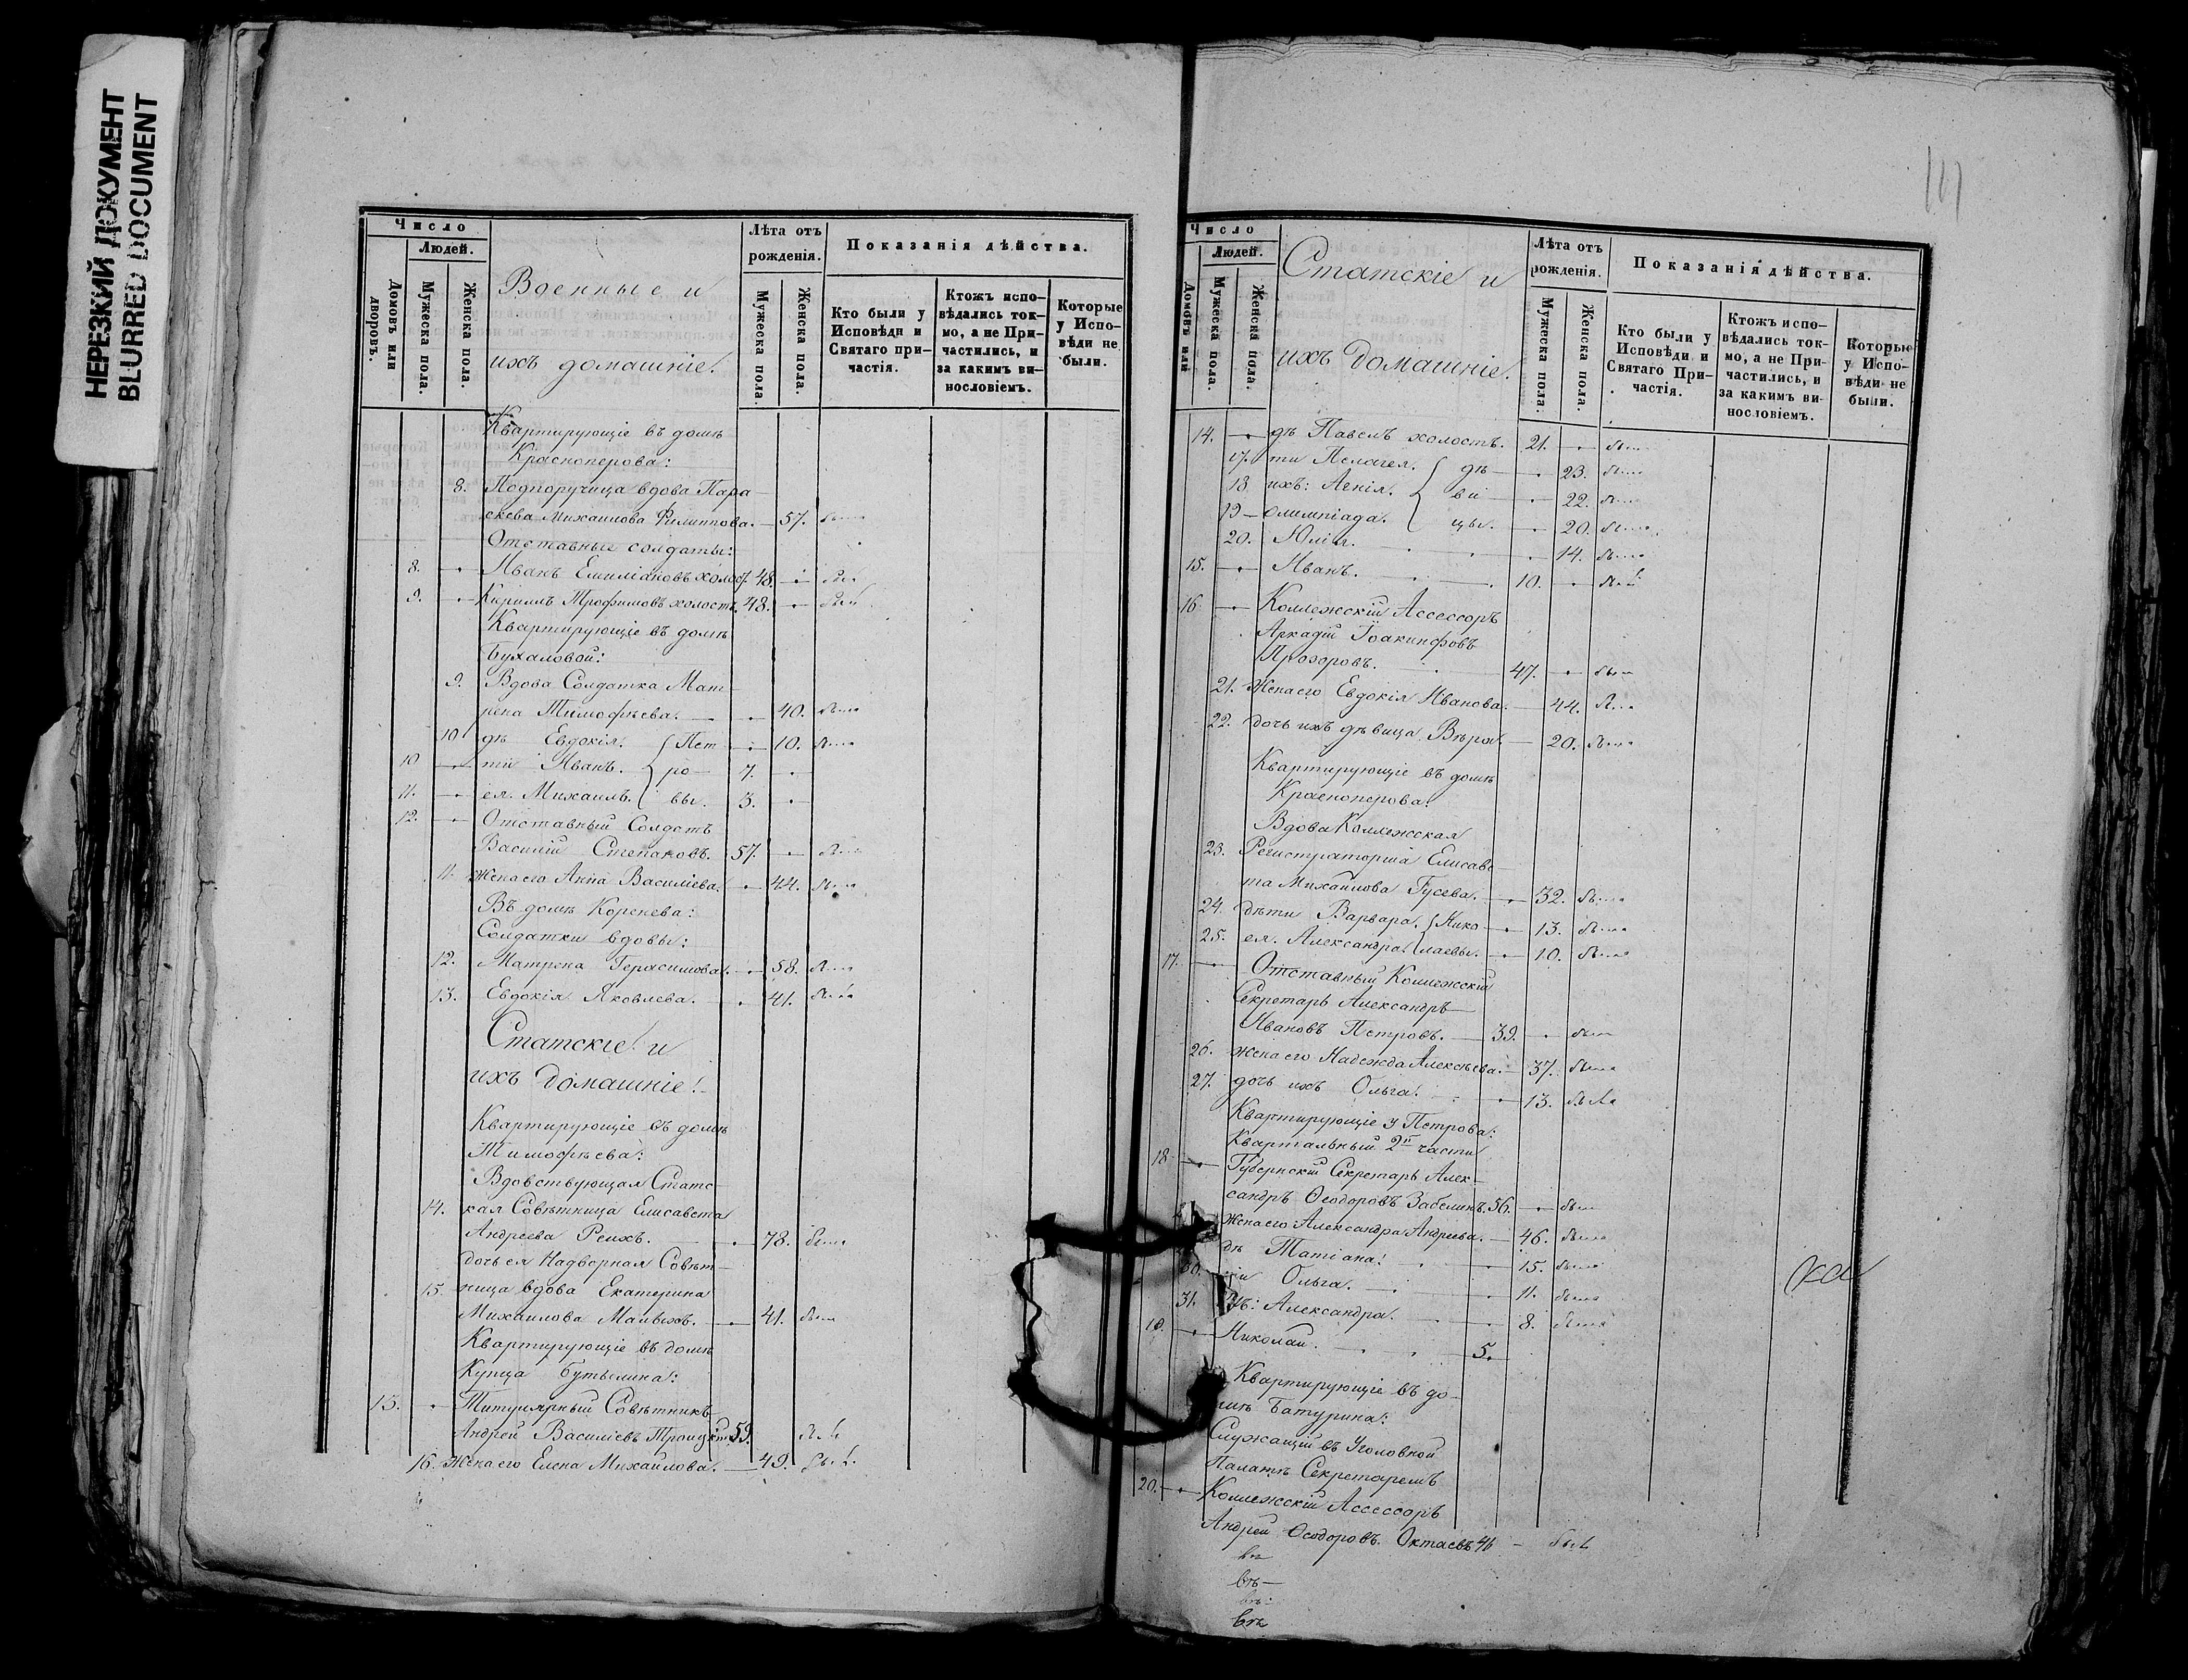 НЕРЕЗКИЙ ДОКУМЕНТ
BLURRED DOCUMENT
Число
Людей.
Домовъ или дворовъ.
Мужеска пола.
Женска пола.
Военные и
ихъ домашніе.
Лѣта отъ рожденія.
Мужеска пола.
Женска пола.
Показанія дѣйства.
Кто были у Исповѣди и Святаго причастія.
Ктожъ исповѣдались токмо, а не Причастились, и за какимъ винословіемъ.
Которые у Исповѣди не были.
Квартирующіе въ домѣ
Красноперова:
8. Подпоручица вдова Пара
скева Михаилова Филиппова. — 57. была
Отставные солдаты:
8. — Иванъ Емиліановъ холост 48. — былъ
9. — Кириллъ Трофимовъ холостъ. 48. — былъ
Квартирующіе въ домѣ
Бухаловой:
9. Вдова Солдатка Мат
рена Тимофѣева. — 40. была
10 дѣ Евдокія. { Пет — 10. была
10 — ти Иванъ. { ро — 7. —
11. — ея. Михаилъ. { вы. 3. —
12. — Отставный Солдатъ
Василій Степановъ. 57. — былъ
11. Жена его Анна Василіева. — 44. была
Въ домѣ Коренева:
Солдатки вдовы:
12. Матрена Герасимова. — 58. была
13. Евдокія Яковлева. — 41. была
Статскіе и
ихъ домашніе!
Квартирующіе въ домѣ
Тимофѣева:
Вдовствующая Статс
14. кая Совѣтница Елисавета
Андреева Реихъ. — 78. была
дочь ея Надворная Совѣт
15. ница вдова Екатерина
Михаилова — 41. была
Квартирующіе въ домѣ
Купца Бутылина:
13. — Титулярный Совѣтникъ
Андрей Василіевъ 59. былъ
16. Жена его Елена Михаилова. — 49. была
Число
Людей.
Домовъ или
Мужеска пола.
Женска пола.
Статскіе и
ихъ домашніе.
Лѣта отъ рожденія.
Мужеска пола.
Женска пола.
Показанія дѣйства.
Кто были у Исповѣди и Святаго Причастія.
Ктожъ исповѣдались токмо, а не Причастились, и за какимъ винословіемъ.
Которые у Исповѣди не были.
14. — дѣ Павелъ холостъ. 21. — былъ
17. ти Пелагея. { дѣ — 23. была
18 ихъ: Агнія. { ви — 22. была
19 — Олимпіада. { цы. — 20. была
20. Юлія. — 14. была
15. — Иванъ. 10. — былъ
16 — Коллежскій Ассессоръ
Аркадій Іоакинфовъ
Прозоровъ. 47. — былъ
21. Жена его Евдокія Иванова. — 44. была
22. дочь ихъ дѣвица Вѣра. — 20. была
Квартирующіе въ домѣ
Красноперова.
Вдова Коллежская
23. Регистраторша Елисаве
та Михаилова Гусева. — 32. была
24. дѣти Варвара. { Нико — 13. была
25. ея. Александра. { лаевы. — 10. была
17. — Отставный Коллежскій
Секретарь Александръ
Ивановъ Петровъ. — 39. — былъ
26. жена его Надежда Алексѣева. — 37. была
27. дочь ихъ Ольга. — 13. была
Квартирующіе у Петрова:
Квартальный 2й части
18 — Губернскій Секретарь Алек
сандръ Ѳеодоровъ Забелинъ. 56. — былъ
Жена его Александра Андреева. — 46. была
дѣ Татіана. — 15. была
30. ти Ольга. — 11. была
31. ихъ: Александра. — 8. была
19. — Николай. — 5.
Квартирующіе въ до
мѣ Батурина:
Служащій въ Уголовной
Палатѣ Секретаремъ
20. — Коллежскій Ассессоръ
Андрей Ѳеодоровъ Октаевъ 46 — былъ